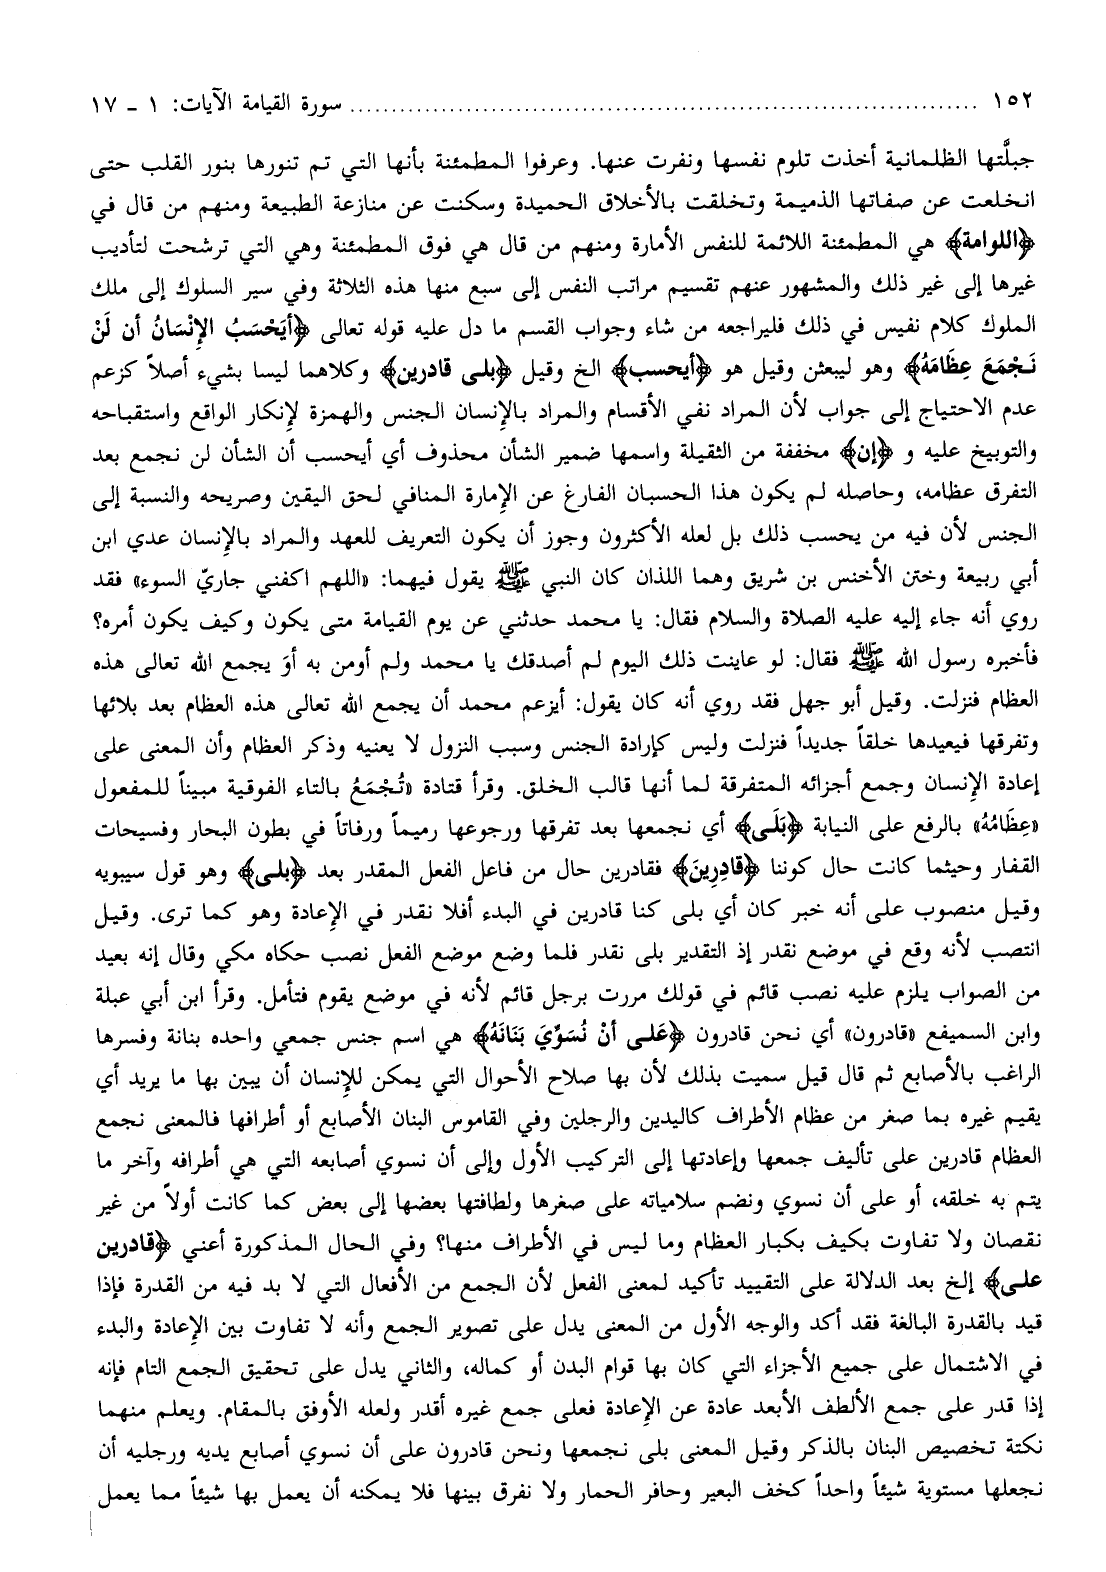 ١٥٢ ........................................................................ سورة القيامة الآيات: ١ - ١٧
جبلَّتها الظلمانية أخذت تلوم نفسها ونفرت عنها. وعرفوا المطمئنة بأنها التي تم تنورها بنور القلب حتى
انخلعت عن صفاتها الذميمة وتخلقت بالأخلاق الحميدة وسكنت عن منازعة الطبيعة ومنهم من قال في
﴿اللوامة﴾ هي المطمئنة اللائمة للنفس الأمارة ومنهم من قال هي فوق المطمئنة وهي التي ترشحت لتأديب
غيرها إلى غير ذلك والمشهور عنهم تقسيم مراتب النفس إلى سبع منها هذه الثلاثة وفي سير السلوك إلى ملك
الملوك كلام نفيس في ذلك فليراجعه من شاء وجواب القسم ما دل عليه قوله تعالى ﴿أيَحْسَبُ الإِنْسَانُ أن لَنْ
نَجْمَعَ عِظَامَهُ﴾ وهو ليبعثن وقيل هو ﴿أيحسب﴾ الخ وقيل ﴿بلى قادرين﴾ وكلاهما ليسا بشيء أصلاً كزعم
عدم الاحتياج إلى جواب لأن المراد نفي الأقسام والمراد بالإنسان الجنس والهمزة لإنكار الواقع واستقباحه
والتوبيخ عليه و ﴿إن﴾ مخففة من الثقيلة واسمها ضمير الشأن محذوف أي أيحسب أن الشأن لن نجمع بعد
التفرق عظامه، وحاصله لم يكون هذا الحسبان الفارغ عن الإمارة المنافي لحق اليقين وصريحه والنسبة إلى
الجنس لأن فيه من يحسب ذلك بل لعله الأكثرون وجوز أن يكون التعريف للعهد والمراد بالإنسان عدي ابن
أبي ربيعة وختن الأخنس بن شريق وهما اللذان كان النبي ﷺ يقول فيهما: «اللهم اكفني جاريّ السوء» فقد
روي أنه جاء إليه عليه الصلاة والسلام فقال: يا محمد حدثني عن يوم القيامة متى يكون وكيف يكون أمره؟
فأخبره رسول الله ﷺ فقال: لو عاينت ذلك اليوم لم أصدقك يا محمد ولم أومن به أوَ يجمع الله تعالى هذه
العظام فنزلت. وقيل أبو جهل فقد روي أنه كان يقول: أيزعم محمد أن يجمع الله تعالى هذه العظام بعد بلائها
وتفرقها فيعيدها خلقاً جديداً فنزلت وليس كإرادة الجنس وسبب النزول لا يعنيه وذكر العظام وأن المعنى على
إعادة الإنسان وجمع أجزائه المتفرقة لما أنها قالب الخلق. وقرأ قتادة «تُجْمَعُ بالتاء الفوقية مبيناً للمفعول
«عِظَامُهُ» بالرفع على النيابة ﴿بَلَى﴾ أي نجمعها بعد تفرقها ورجوعها رميماً ورفاتاً في بطون البحار وفسيحات
القفار وحيثما كانت حال كوننا ﴿قادِرِينَ﴾ فقادرين حال من فاعل الفعل المقدر بعد ﴿بلى﴾ وهو قول سيبويه
وقيل منصوب على أنه خبر كان أي بلى كنا قادرين في البدء أفلا نقدر في الإعادة وهو كما ترى. وقيل
انتصب لأنه وقع في موضع نقدر إذ التقدير بلى نقدر فلما وضع موضع الفعل نصب حكاه مكي وقال إنه بعيد
من الصواب يلزم عليه نصب قائم في قولك مررت برجل قائم لأنه في موضع يقوم فتأمل. وقرأ ابن أبي عبلة
وابن السميفع «قادرون» أي نحن قادرون ﴿عَلى أنْ نُسَوِّيَ بَنَانَهُ﴾ هي اسم جنس جمعي واحده بنانة وفسرها
الراغب بالأصابع ثم قال قيل سميت بذلك لأن بها صلاح الأحوال التي يمكن للإنسان أن يبين بها ما يريد أي
يقيم غيره بما صغر من عظام الأطراف كاليدين والرجلين وفي القاموس البنان الأصابع أو أطرافها فالمعنى نجمع
العظام قادرين على تأليف جمعها وإعادتها إلى التركيب الأول وإلى أن نسوي أصابعه التي هي أطرافه وآخر ما
يتم به خلقه، أو على أن نسوي ونضم سلامياته على صغرها ولطافتها بعضها إلى بعض كما كانت أولاً من غير
نقصان ولا تفاوت بكيف بكبار العظام وما ليس في الأطراف منها؟ وفي الحال المذكورة أعني ﴿قادرين
على﴾ إلخ بعد الدلالة على التقييد تأكيد لمعنى الفعل لأن الجمع من الأفعال التي لا بد فيه من القدرة فإذا
قيد بالقدرة البالغة فقد أكد والوجه الأول من المعنى يدل على تصوير الجمع وأنه لا تفاوت بين الإعادة والبدء
في الاشتمال على جميع الأجزاء التي كان بها قوام البدن أو كماله، والثاني يدل على تحقيق الجمع التام فإنه
إذا قدر على جمع الألطف الأبعد عادة عن الإعادة فعلى جمع غيره أقدر ولعله الأوفق بالمقام. ويعلم منهما
نكتة تخصيص البنان بالذكر وقيل المعنى بلى نجمعها ونحن قادرون على أن نسوي أصابع يديه ورجليه أن
نجعلها مستوية شيئاً واحداً كخف البعير وحافر الحمار ولا نفرق بينها فلا يمكنه أن يعمل بها شيئاً مما يعمل